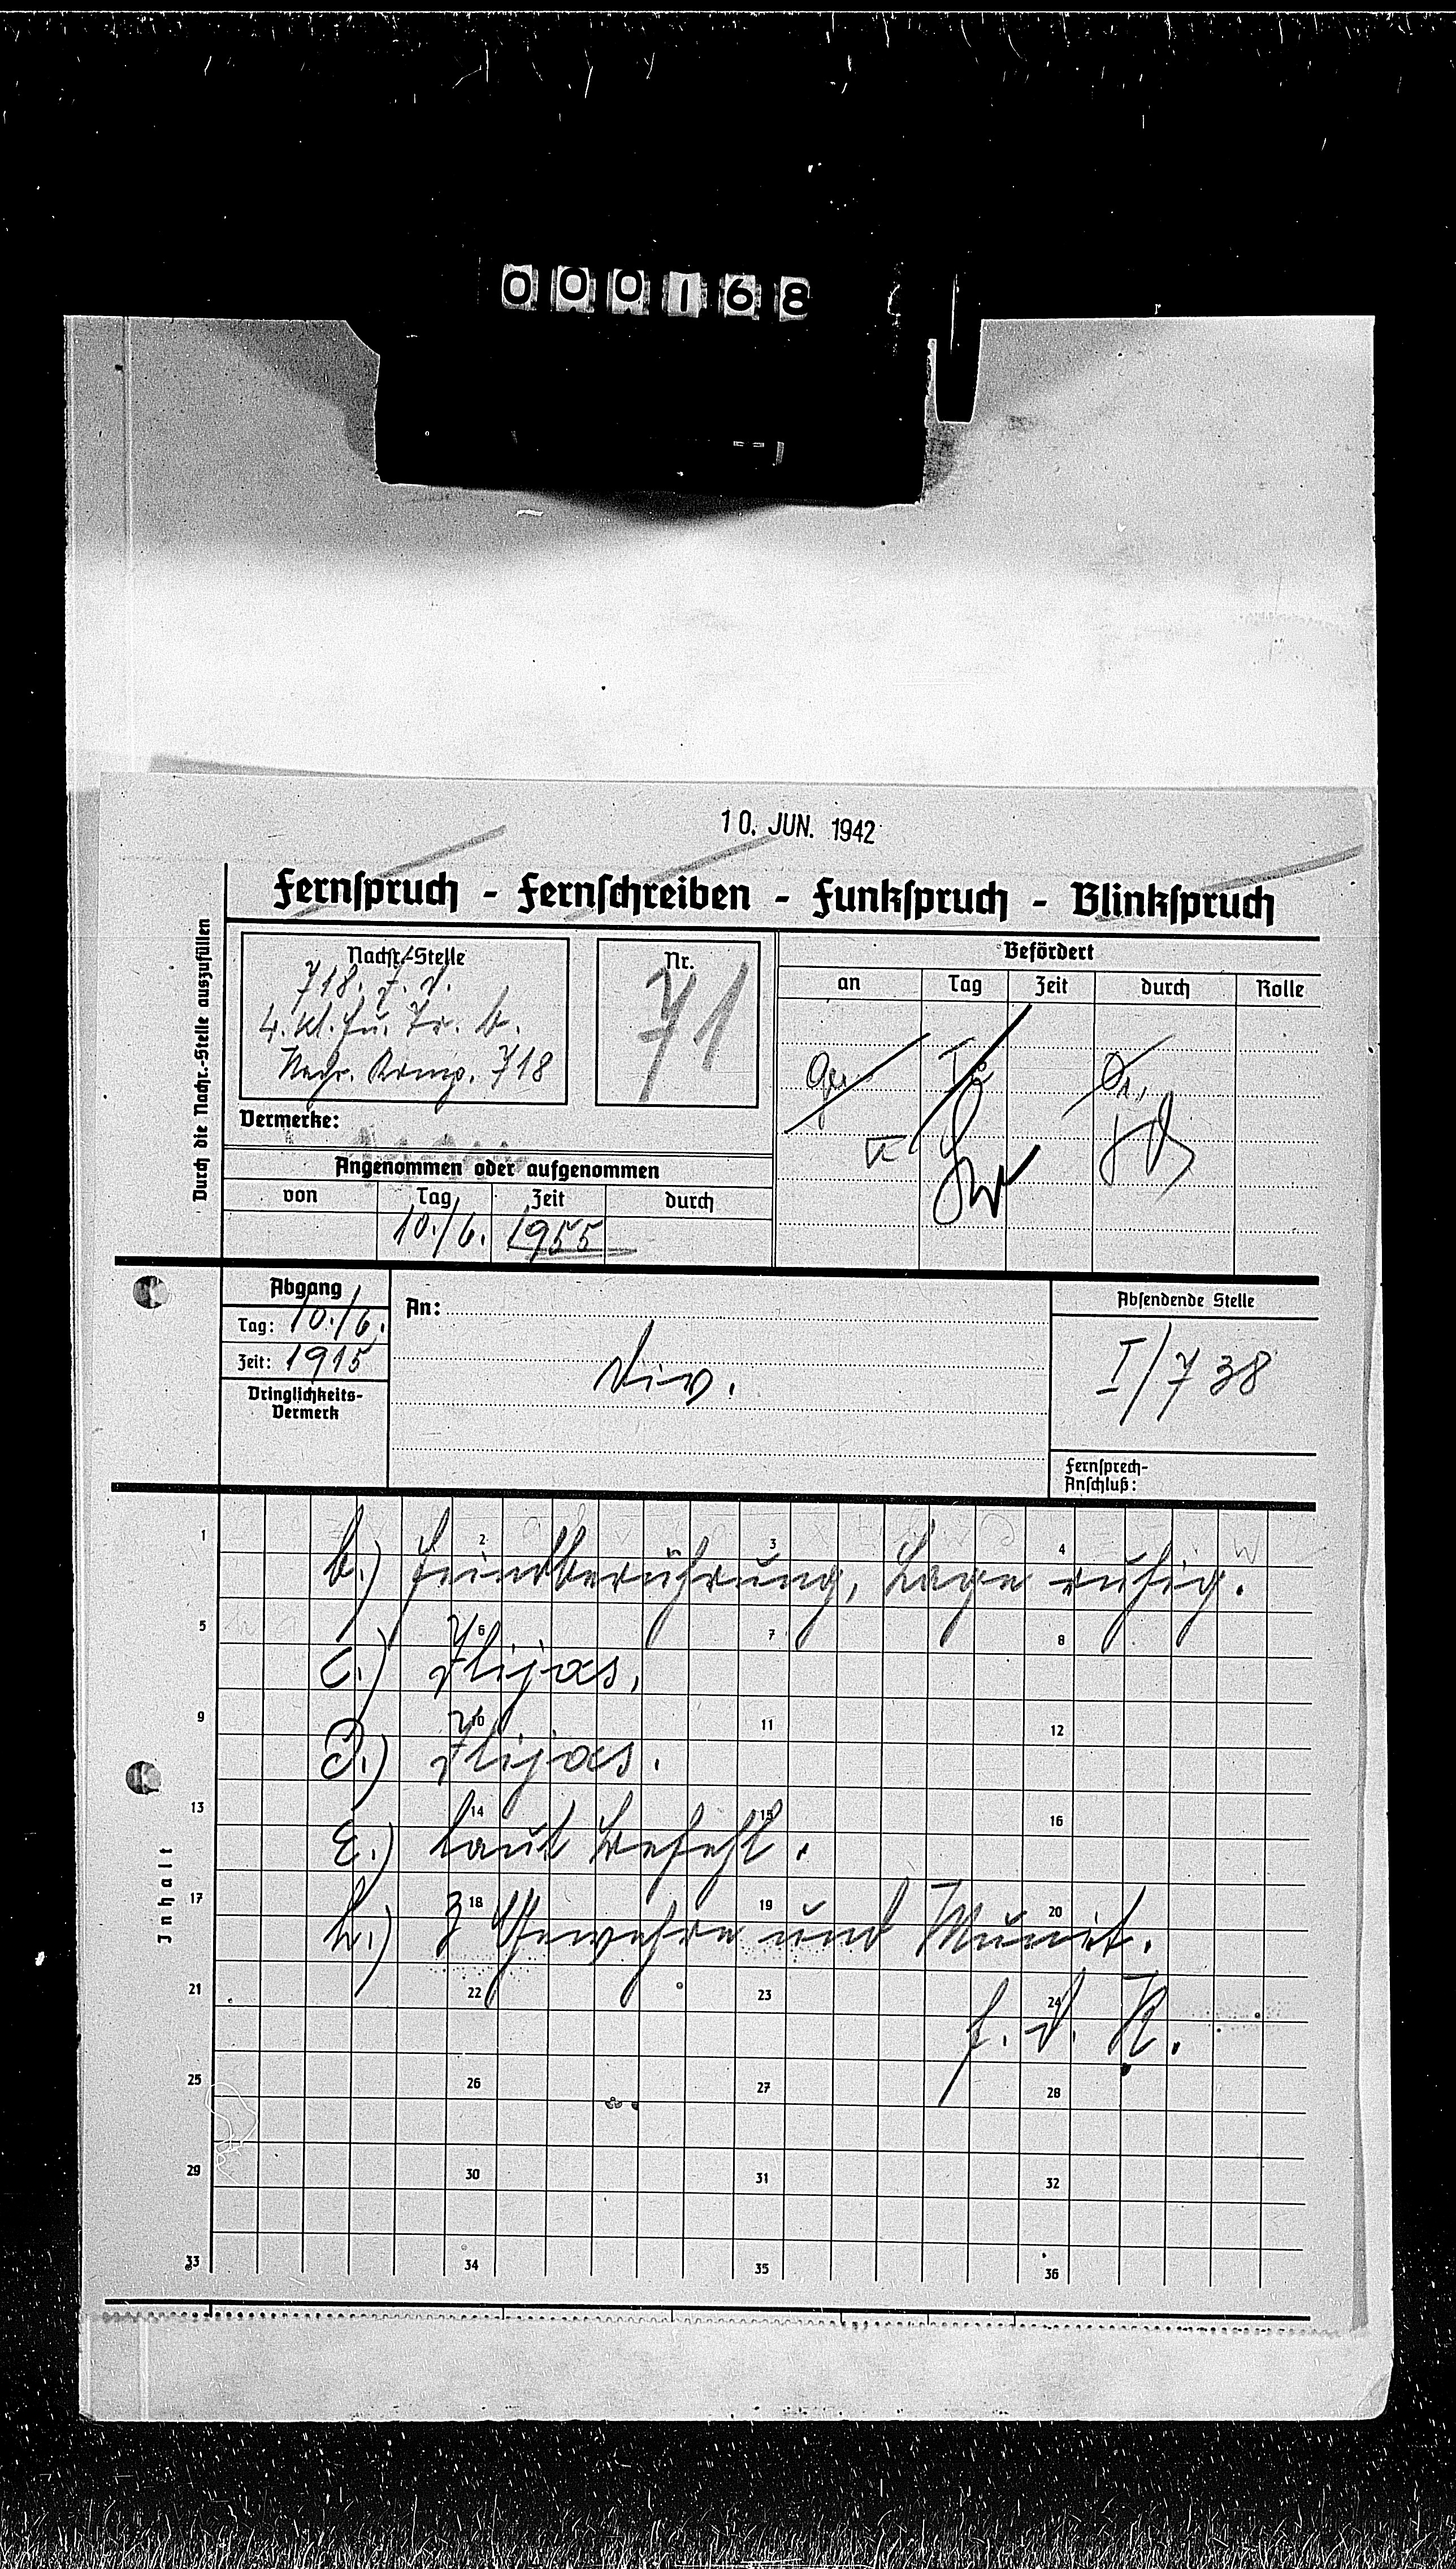 000168
10. JUN. 1942
Fernspruch - Fernschreiben - Funkspruch - Blinkspruch
Durch die Nachr.-Stelle auszufüllen
Nachr.-Stelle
718. J. D.
4. kl. Fu. Tr. b.
Nachr. Komp. 718
Nr.
71
Befördert
an Tag Zeit durch Rolle
Vermerke:
Angenommen oder aufgenommen
von Tag Zeit durch
10./6. 1955
Abgang
Tag: 10./6.
Zeit: 1915
Dringlichkeits-
Vermerk
An:
Div.
Absendende Stelle
I/738
Fernsprech-
Anschluß:
Inhalt
1 2 3 4
b.) Feindberührung, Lage ruhig.
5 6 7 8
c.) Ilijas,
9 10 11 12
d.) Ilijas.
13 14 15 16
E.) laut Befehl.
17 18 19 20
h.) 3 Gewehre und Munit.
21 22 23 24
f. d. R.
25 26 27 28
29 30 31 32
33 34 35 36